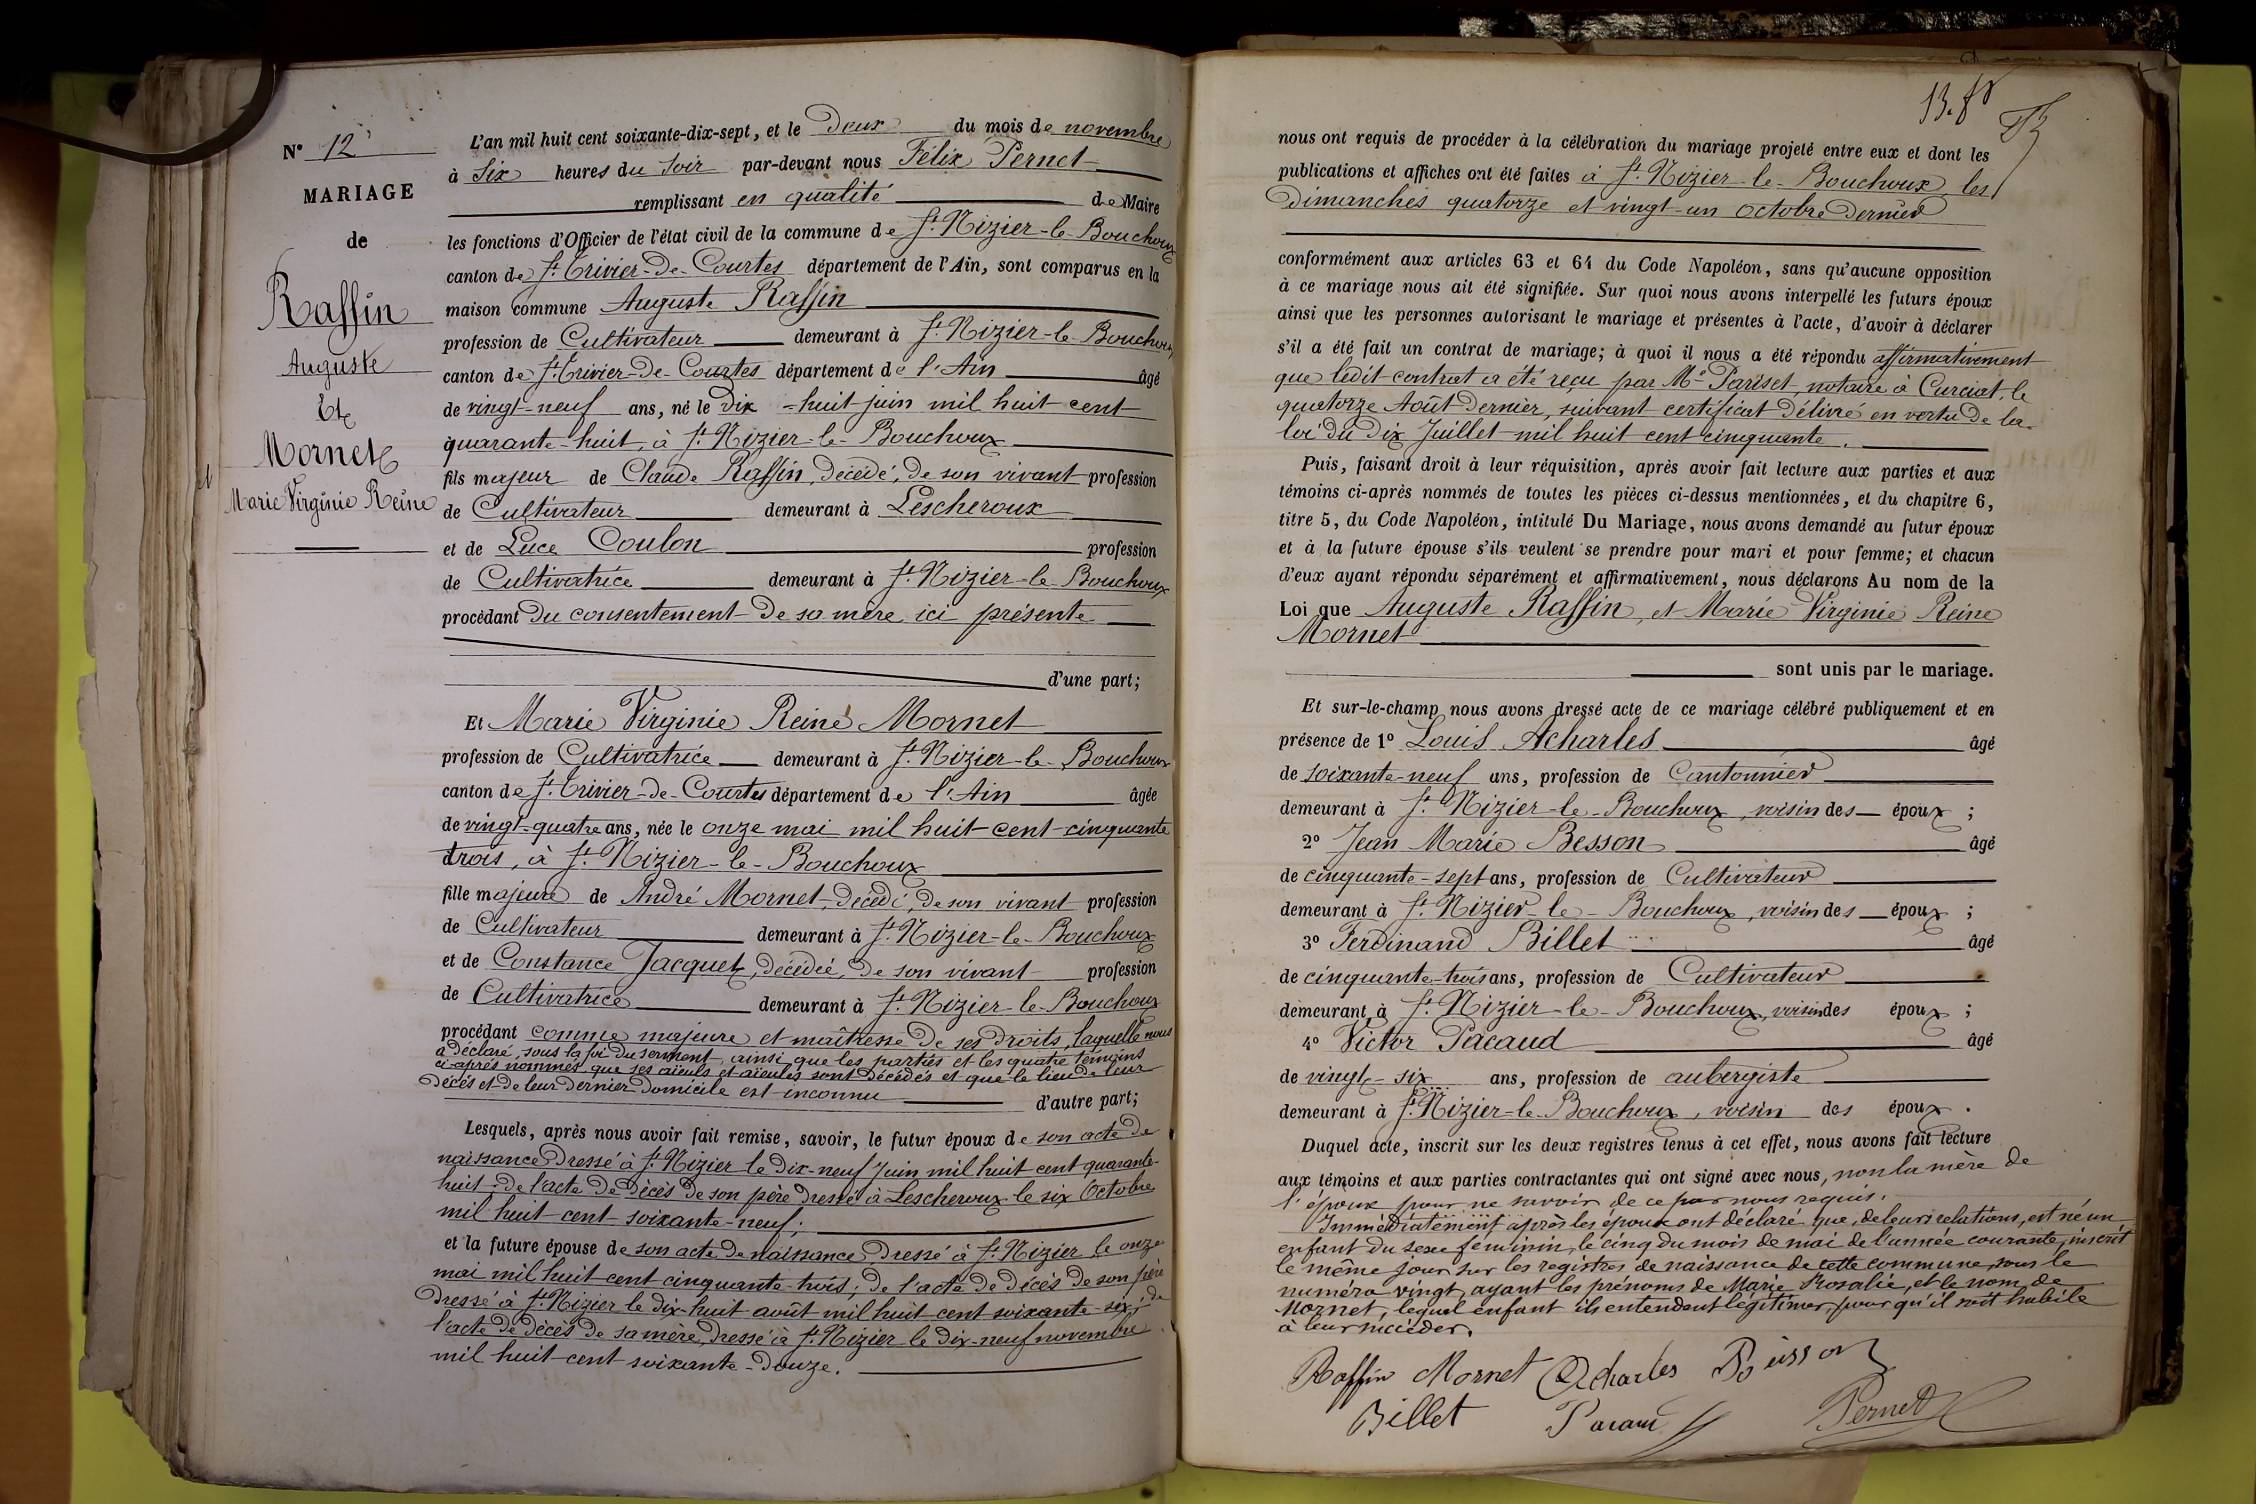 N° 12
MARIAGE
de
Raffin
Auguste
Et
Mornet
Marie Virginie Reine
L'an mil huit cent soixante-dix-sept, et le Deux du mois de novembre
à Six heures du Soir par-devant nous Félix Pernet
remplissant en qualité de Maire
les fonctions d'Officier de l'état civil de la commune de St. Nizier-le-Bouchoux
canton de St. Trivier-De-Courtes département de l'Ain, sont comparus en la
maison commune Auguste Raffin
profession de Cultivateur demeurant à St. Nizier-le-Bouchoux
canton de St. Trivier-De-Courtes département de l'Ain âgé
de vingt-neuf ans, né le Dix-huit juin mil huit cent
quarante-huit, à St. Nizier-le-Bouchoux
fils majeur de Claude Raffin, Décédé, De son vivant profession
de Cultivateur demeurant à Lescheroux
et de Luce Coulon profession
de Cultivatrice demeurant à St. Nizier-le-Bouchoux
procédant Du consentement De sa mère ici présente
d'une part;
Et Marie Virginie Reine Mornet
profession de Cultivatrice demeurant à St. Nizier-le-Bouchoux
canton de St. Trivier-De-Courtes département de l'Ain âgée
de vingt-quatre ans, née le onze mai mil huit cent cinquante
trois, à St. Nizier-le-Bouchoux
fille majeure de André Mornet, Décédé, De son vivant profession
de Cultivateur demeurant à St. Nizier-le-Bouchoux
et de Constance Jacquet, Décédée, De son vivant profession
de Cultivatrice demeurant à St. Nizier-le-Bouchoux
procédant comme majeure et maîtresse De ses Droits, laquelle nous
a Déclaré, sous la foi Du serment, ainsi que les parties et les quatre témoins
ci-après nommés que ses aïeuls et aïeules sont Décédés et que le lieu De leur
Décès et De leur Dernier Domicile est inconnu d'autre part;
Lesquels, après nous avoir fait remise, savoir, le futur époux de son acte De
naissance Dressé à St. Nizier le Dix-neuf Juin mil huit cent quarante-
huit; De l'acte De Décès De son père Dressé à Lescheroux le six Octobre
mil huit cent soixante-neuf;
et la future épouse de son acte De naissance Dressé à St. Nizier le onze
mai mil huit cent cinquante-trois; De l'acte De Décès De son père
Dressé à St. Nizier le Dix-huit août mil huit cent soixante-six; de
l'acte De Décès De sa mère, Dressé à St. Nizier le Dix-neuf novembre
mil huit cent soixante-Douze.
nous ont requis de procéder à la célébration du mariage projeté entre eux et dont les
publications et affiches ont été faites à St. Nizier-le-Bouchoux les
Dimanches quatorze et vingt-un Octobre Dernier
conformément aux articles 63 et 64 du Code Napoléon, sans qu'aucune opposition
à ce mariage nous ait été signifiée. Sur quoi nous avons interpellé les futurs époux
ainsi que les personnes autorisant le mariage et présentes à l'acte, d'avoir à déclarer
s'il a été fait un contrat de mariage; à quoi il nous a été répondu affirmativement
que ledit contrat a été reçu par Me Pariset, notaire à Curciat, le
quatorze Août Dernier, suivant certificat Délivré en vertu De la
loi du Dix Juillet mil huit cent cinquante.
Puis, faisant droit à leur réquisition, après avoir fait lecture aux parties et aux
témoins ci-après nommés de toutes les pièces ci-dessus mentionnées, et du chapitre 6,
titre 5, du Code Napoléon, intitulé Du Mariage, nous avons demandé au futur époux
et à la future épouse s'ils veulent se prendre pour mari et pour femme; et chacun
d'eux ayant répondu séparément et affirmativement, nous déclarons Au nom de la
Loi que Auguste Raffin, et Marie Virginie Reine
Mornet
sont unis par le mariage.
Et sur-le-champ nous avons dressé acte de ce mariage célébré publiquement et en
présence de 1° Louis Acharles âgé
de soixante-neuf ans, profession de Cantonnier
demeurant à St. Nizier-le-Bouchoux, voisin des époux;
2° Jean Marie Besson âgé
de cinquante-sept ans, profession de Cultivateur
demeurant à St. Nizier-le-Bouchoux, voisin des époux;
3° Ferdinand Billet âgé
de cinquante-trois ans, profession de Cultivateur
demeurant à St. Nizier-le-Bouchoux, voisin des époux;
4° Victor Pacaud âgé
de vingt-six ans, profession de aubergiste
demeurant à St. Nizier-le-Bouchoux, voisin des époux.
Duquel acte, inscrit sur les deux registres tenus à cet effet, nous avons fait lecture
aux témoins et aux parties contractantes qui ont signé avec nous, non la mère de
l'époux pour ne savoir, de ce par nous requis.
Immédiatement après les époux ont déclaré que, de leurs relations, est né un
enfant du sexe féminin, le cinq du mois de mai de l'année courante, inscrit
le même jour sur les registres de naissance de cette commune, sous le
numéro vingt, ayant les prénoms de Marie Rosalie, et le nom de
Mornet, lequel enfant ils entendent légitimer, pour qu'il soit habile
à leur succéder.
Raffin Mornet Acharles Besson
Billet Pacaud Pernet